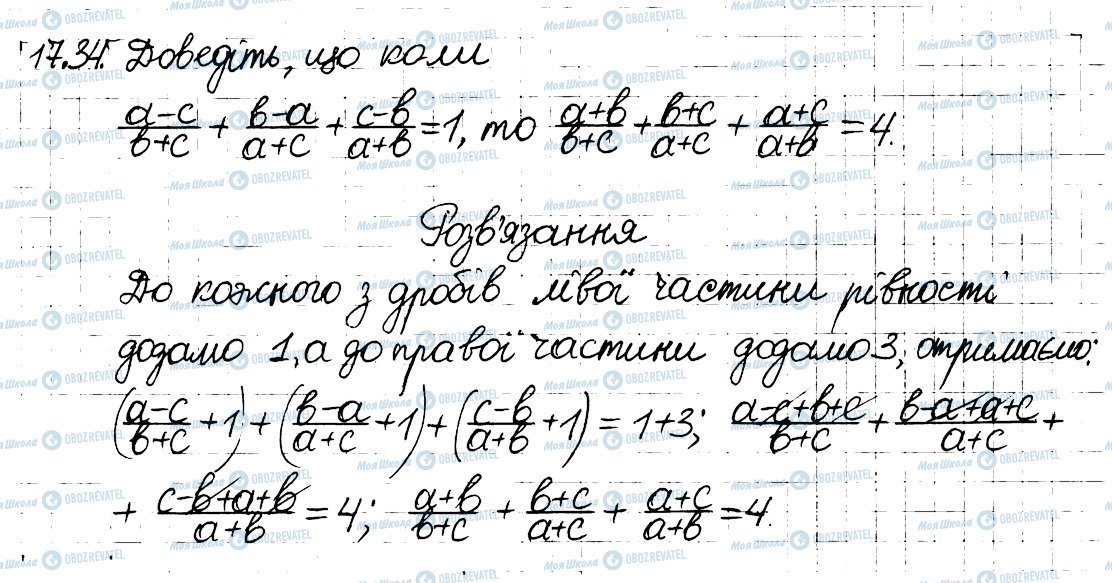 17.34. Доведіть, що коли
(a-c)/(b+c) + (b-a)/(a+c) + (c-b)/(a+b) = 1, то (a+b)/(b+c) + (b+c)/(a+c) + (a+c)/(a+b) = 4.
Розв'язання
До кожного з дробів лівої частини рівності
додамо 1, а до правої частини додамо 3, отримаємо:
((a-c)/(b+c) + 1) + ((b-a)/(a+c) + 1) + ((c-b)/(a+b) + 1) = 1+3; (a-c+b+c)/(b+c) + (b-a+a+c)/(a+c) +
+ (c-b+a+b)/(a+b) = 4; (a+b)/(b+c) + (b+c)/(a+c) + (a+c)/(a+b) = 4.
Моя Школа OBOZREVATEL